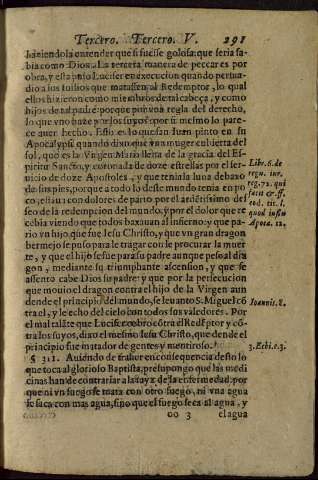 Tercero. Tercero. V. 291
haziendola entender que si fuesse golosa: que seria sa-
bia como Dios. La tercera manera de peccar es por
obra, y esta puso Lucifer en execucion quando persua-
dio a los suyos que matassen al Redemptor, lo qual
ellos hizieron como miembros de tal cabeça, y como
hijos de tal padre: porque por vna regla del derecho,
lo que vno haze por los suyos: por si mesmo lo pare-
ce auer hecho. Esto es lo que san Iuan pinto en su
Apocalypsi quando dixo que vna muger cubierta del
sol, que es la Virgen Maria llena de la gracia del Es-
piritu Sancto, y coronada de doze estrellas por el ser-
uicio de doze Apostoles, y que tenia la luna debaxo
de sus pies, porque a todo lo deste mundo tenia en po
co; estaua con dolores de parto por el ardétissimo des-
seo de la redempcion del mundo: y por el dolor que re
cebia viendo que todos baxauan al infierno: y que pa-
rio vn hijo que fue Iesu Christo, y que vn gran dragon
bermejo se puso para le tragar con le procurar la muer
te, y que el hijo se fue para su padre aunque peso al dra
gon, mediante su triumphante ascension, y que se
assento cabe Dios su padre: y que por la persecucion
que mouio el dragon contra el hijo de la Virgen aun
dende el principio del mundo, se leuanto S. Miguel cô
tra el, y le echo del cielo con todos sus valedores. Por
el mal talâte que Lucifer cobro côtra el Redêptor y cô-
tra los suyos, dixo el mesmo Iesu Christo, que dende el
principio fue matador de gentes y mentiroso.
§ 311. Auiendo de traher en consequencia desto lo
que toca al glorioso Baptista, presupongo que las medi
cinas han de contrariar a la raya de la enfermedad, por
que ni vn fuego se mata con otro fuego, ni vna agua
se saca con mas agua, sino que el fuego seca al agua, y
oo 3 el agua
Lib. 6. de
regu. iur.
reg. 72. qui
facit & ff.
eod. tit. l.
quod iussu
Apoca. 12.
Ioannis. 8.